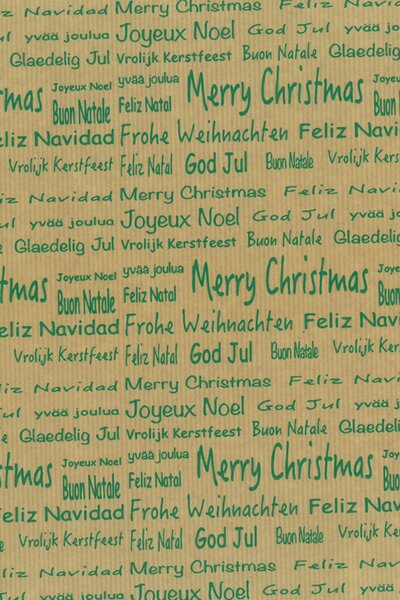 Navidad Merry Christmas Feliz Navi
yvää joulua Joyeux Noel God Jul yvää jo
Glaedelig Jul Vrolijk Kerstfeest Buon Natale Glaedelig
mas Joyeux Noel yvää joulua Merry Christmas Joye
Buon Natale Feliz Natal Buon
eliz Navidad Frohe Weihnachten Feliz Navi
Vrolijk Kerstfeest Feliz Natal God Jul Buon Natale Vrolijk Kers
iz Navidad Merry Christmas Feliz Navi
ul yvää joulua Joyeux Noel God Jul yvää jo
Glaedelig Jul Vrolijk Kerstfeest Buon Natale Glaedelig
tmas Joyeux Noel yvää joulua Merry Christmas Joy
Buon Natale Feliz Natal Buon
eliz Navidad Frohe Weihnachten Feliz Navi
Vrolijk Kerstfeest Feliz Natal God Jul Buon Natale Vrolijk Ker
liz Navidad Merry Christmas Feliz Navi
Jul yvää joulua Joyeux Noel God Jul yvää j
e Glaedelig Jul Vrolijk Kerstfeest Buon Natale Glaedelig
stmas Joyeux Noel yvää joulua Merry Christmas Jo
Buon Natale Feliz Natal Buo
eliz Navidad Frohe Weihnachten Feliz Nav
e Vrolijk Kerstfeest Feliz Natal God Jul Buon Natale Vrolijk Ke
liz Navidad Merry Christmas Feliz Nav
Jul yvää joulua Joyeux Noel God Jul yvää